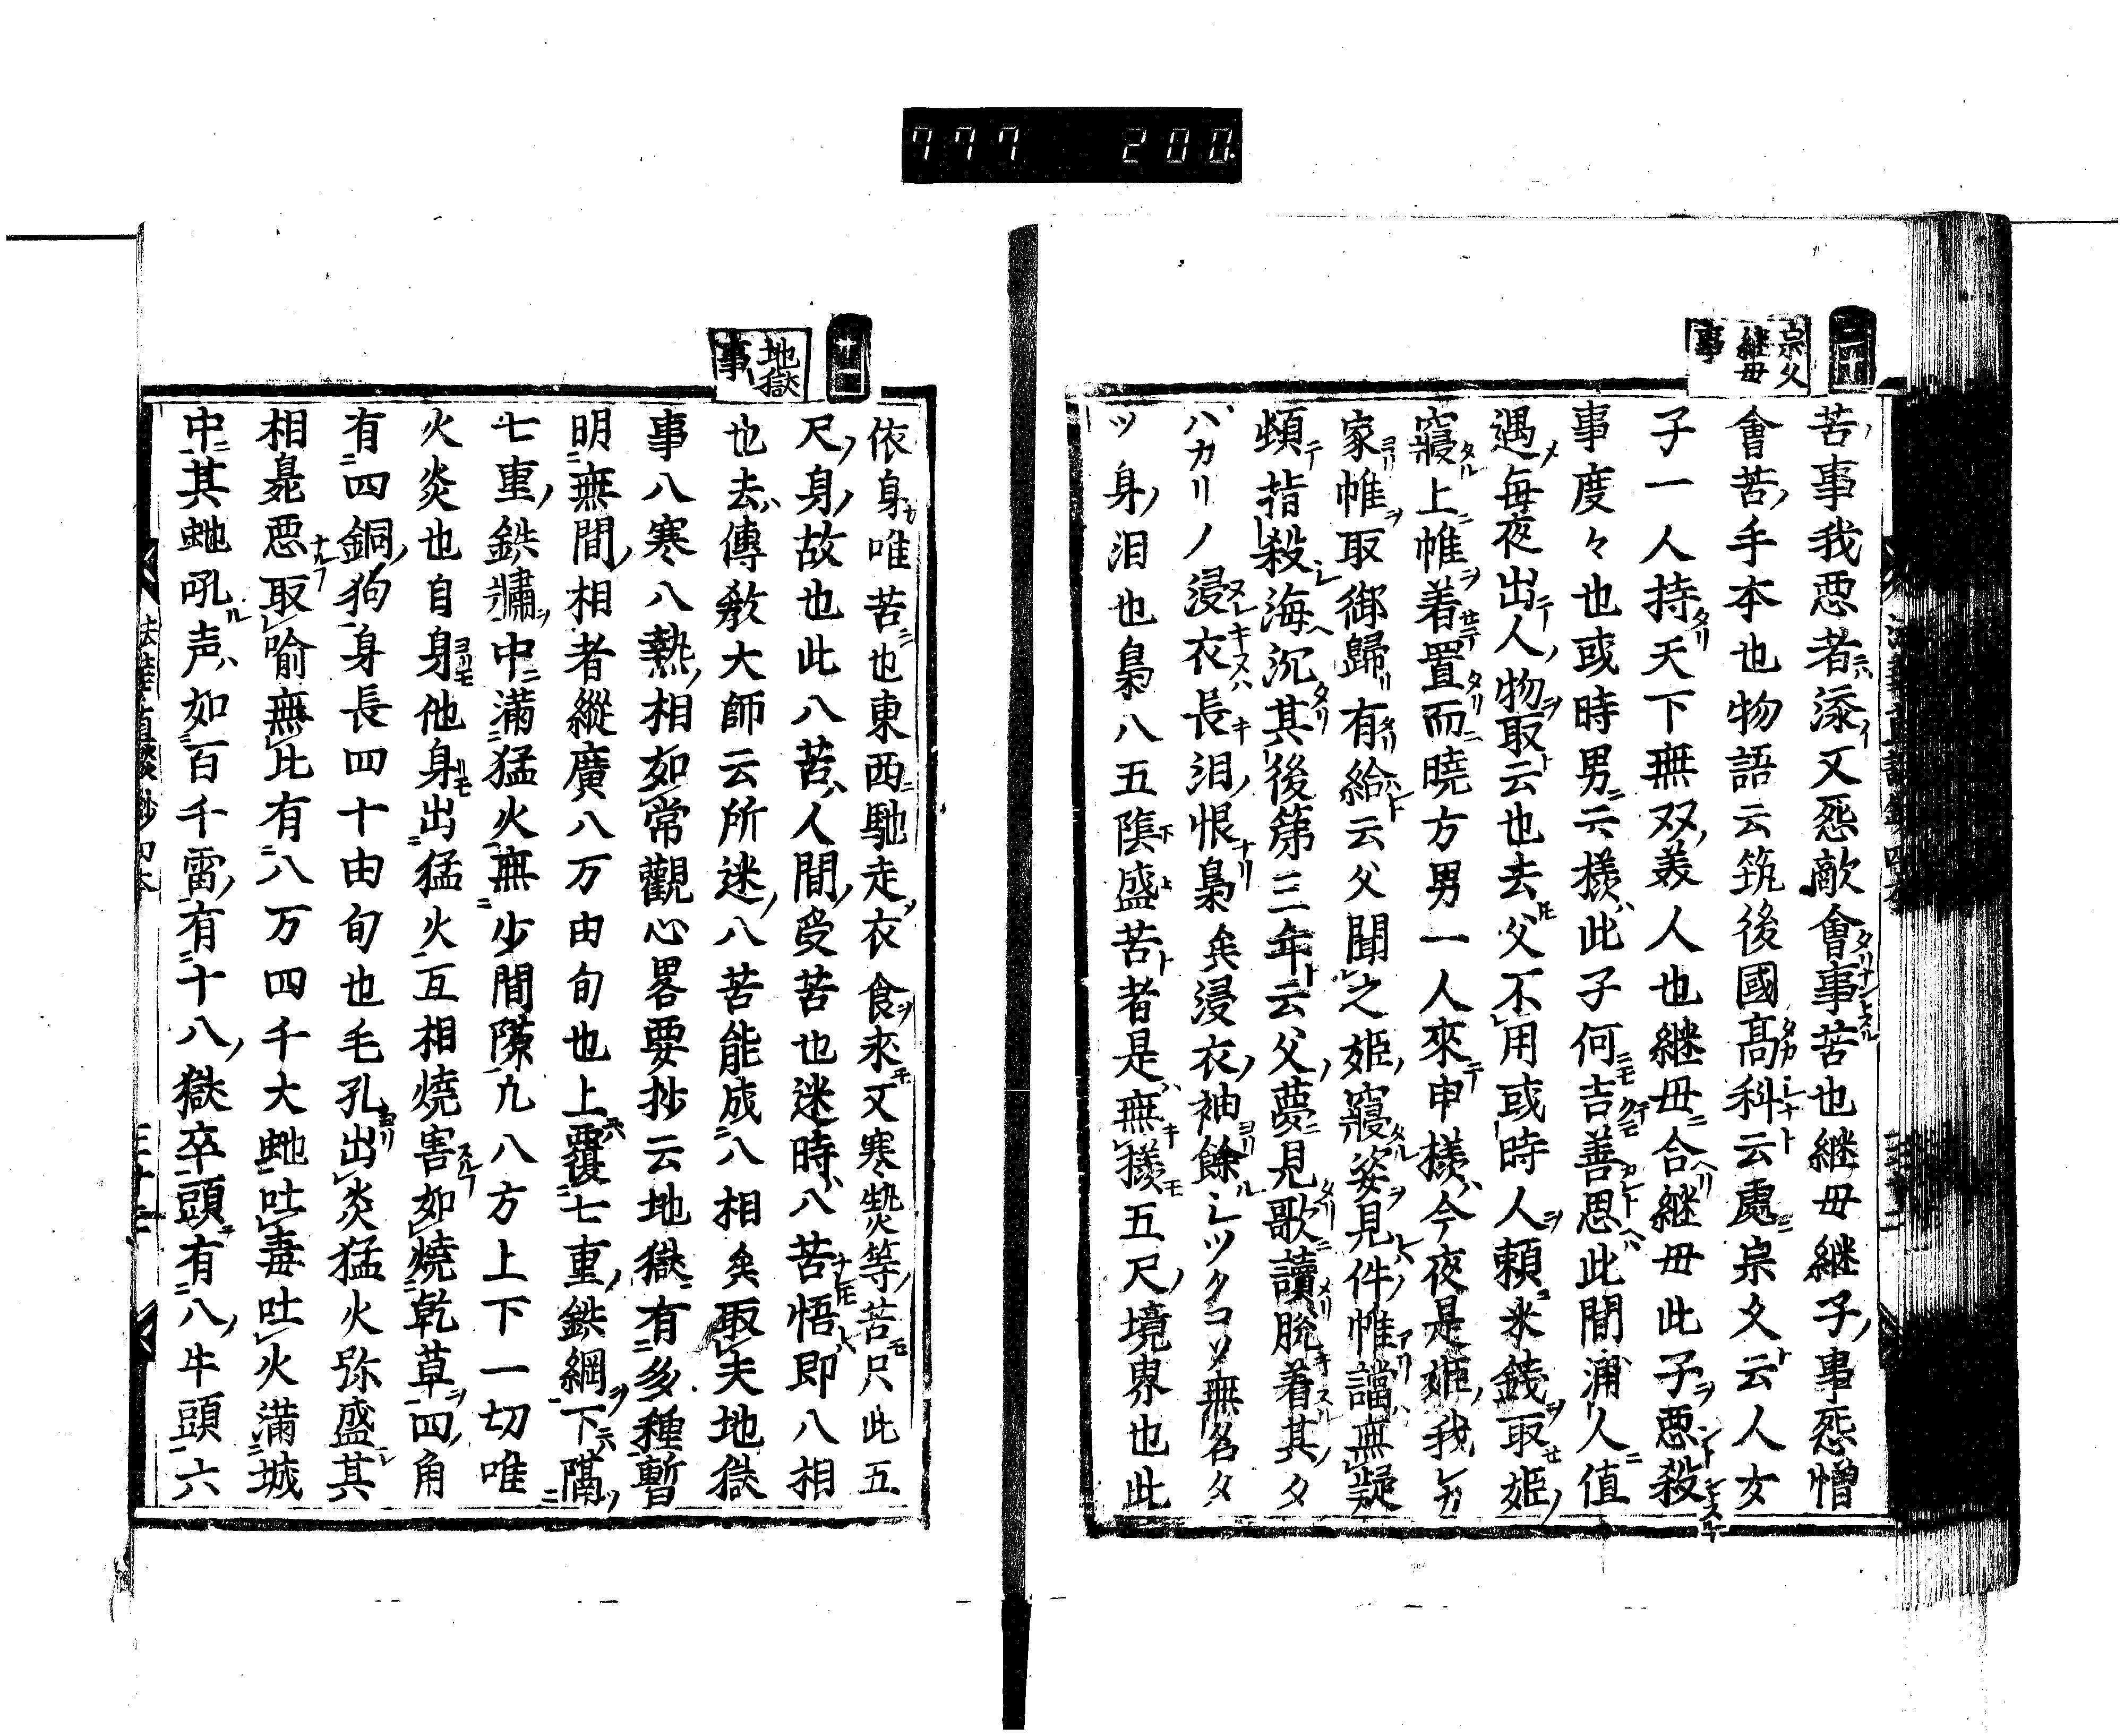 777 200.
宗父
継母
事
苦事我悪者添又怨敵會事苦也継毋継子事怨憎
會苦手本也物語云筑後國髙科云處宗父云人女
子一人持天下無双美人也継毋合継毋此子悪殺
事度々也或時男云様此子何吉善思此間浦人值
遇每夜出人物取云也去父不用或時人頼米錢取姫
寢上帷着置而曉方男一人來申様今夜是姫我
家帷取御歸有給云父聞之姫寢姿見件帷譡無疑
頓指殺海沉其後第三年云父夢見歌讀脫着其タ
バカリノ浸衣長泪恨梟矣浸衣袖餘シツクコソ無名タ
ツ身泪也梟八五陰盛苦者是無様五尺境界也此
地獄
事
十二
依身唯苦也東西馳走衣食求又寒熱等苦尺此五
尺身故也此八苦人間受苦也迷時八苦悟即八相
也去傳敎大師云所迷八苦能成八相矣取夫地獄
事八寒八熱相如常觀心畧要抄云地獄有多種暫
明無間相者縱廣八万由旬也上覆七重鉄綱下隔
七重鉄𤗉中滿猛火無少間隙九八方上下一切唯
火炎也自身他身出猛火互相燒害如燒乾草四角
有四銅狗身長四十由旬也毛孔出炎猛火弥盛其
相㒵悪取喻無比有八万四千大虵吐毒吐火滿城
中其虵吼声如百千雷有十八獄卒頭有八牛頭六